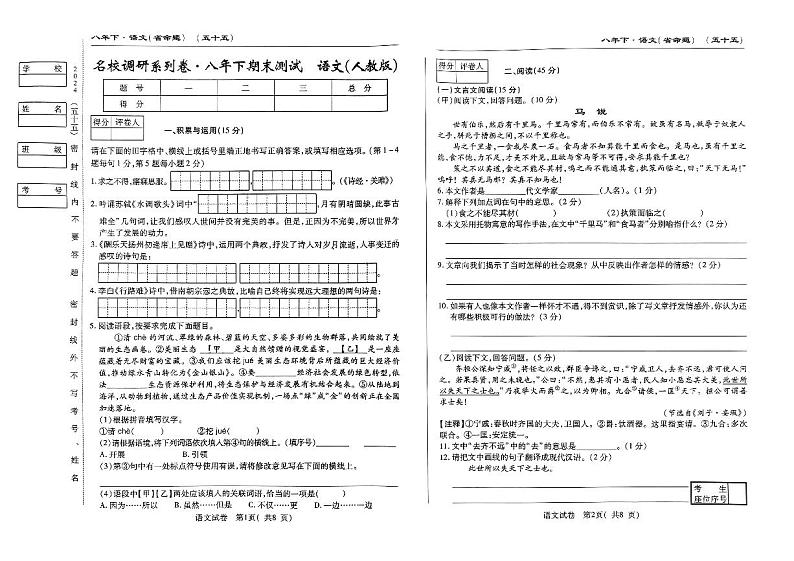 八年下·语文(省命题) (五十五)
学 校
姓 名
班 级
考 号
2024 (五十五) 密 封 线 内 不 要 答 题
密 封 线 外 不 写 考 号 、 姓 名
名校调研系列卷·八年下期末测试 语文(人教版)
题 号 一 二 三 总 分
得 分
得分 评卷人
一、积累与运用(15分)
请在下面的田字格中、横线上或括号里端正地书写正确答案,或填写相应选项。(第1~4
题每句1分,第5题每小题2分)
1.求之不得,寤寐思服。 。(《诗经·关雎》)
2.吟诵苏轼《水调歌头》词中“ ,月有阴晴圆缺,此事古
难全”几句词,让我们感叹人世间并没有完美的事。但是,正因为不完美,所以世界才
产生了发展的动力。
3.《酬乐天扬州初逢席上见赠》诗中,运用两个典故,抒发了诗人对岁月流逝,人事变迁的
感叹的诗句是:
4.李白《行路难》诗中,借南朝宗悫之典故,比喻自己终将实现远大理想的两句诗是:
5.阅读语段,按要求完成下面题目。
①清chè的河流、翠绿的森林、碧蓝的天空、多姿多彩的生物群落,共同绘就了美
丽的生态画卷。②美丽生态【甲】是大自然馈赠的视觉盛宴,【乙】是一座座
蕴藏着无尽财富的宝藏,③我们应该挖jué美丽生态环境背后所蕴藏的巨大经济
价值,推动绿水青山转化为《金山银山》。④要 经济社会发展的绿色转型,依
 生态资源保护利用,将生态保护与经济发展有机融合起来。⑤从陆地到
海洋,从动物到植物,送过生态产品价值实现机制,一场点“绿”成“金”的创新正在全国
加速落地。
(1)根据拼音填写汉字。
①清chè( ) ②挖jué( )
(2)请根据语境,将下列词语依次填入第④句的横线上。(填序号)
A.开展 B.引领
(3)第③句中有一处标点符号使用有误,请将修改意见写在下面的横线上。
(4)语段中【甲】【乙】两处应该填入的关联词语,恰当的一项是( )
A.因为……所以 B.虽然……但是 C.不仅……更 D.一边……一边
语文试卷 第1页( 共8 页)
八年下·语文(省命题) (五十五)
得分 评卷人
二、阅读(45分)
(一)文言文阅读(15分)
(甲)阅读下文,回答问题。(10分)
马 说
世有伯乐,然后有千里马。千里马常有,而伯乐不常有。故虽有名马,祗辱于奴隶人
之手,骈死于槽枥之间,不以千里称也。
马之千里者,一食或尽粟一石。食马者不知其能千里而食也。是马也,虽有千里之
能,食不饱,力不足,才美不外见,且欲与常马等不可得,安求其能千里也?
策之不以其道,食之不能尽其材,鸣之而不能通其意,执策而临之,曰:“天下无马!”
呜呼!其真无马邪?其真不知马也!
6.本文作者是 代文学家 (人名)。(1分)
7.解释下列加点词在句中的意思。(2分)
(1)食之不能尽其材( ) (2)执策而临之( )
8.本文采用托物寓意的写作手法,在文中“千里马”和“食马者”分别喻指什么?(2分)
9.文章向我们揭示了当时怎样的社会现象?从中反映出作者怎样的情感?(2分)
10.如果有人也像本文作者一样怀才不遇,得不到赏识,除了写文章抒发情感外,你认为还
有哪些积极可行的做法?(3分)
(乙)阅读下文,回答问题。(5分)
齐桓公深知宁戚①,将任之以政,群臣争谗之,曰:“宁戚卫人,去齐不远,君可使人问
之。若果真贤,用之未晚也。”公曰:“不然,患其有小恶者,民人知小恶忘其大美,此世所
以失天下之士也。”乃夜举火而爵②之,以为卿相,九合③诸侯,一匡④天下,桓公可谓善
求士矣!
(节选自《刘子·妄瑕》)
【注释】①宁戚:春秋时齐国的大夫,卫国人。②爵:饮酒器,这里指宴请。③九合:多次
联合。④一匡:安定统一。
11.文中“去齐不远”中的“去”的意思是 。(1分)
12.请把文中画线的句子翻译成现代汉语。(2分)
此世所以失天下之士也。
考 生
座位序号
语文试卷 第2页( 共8 页)